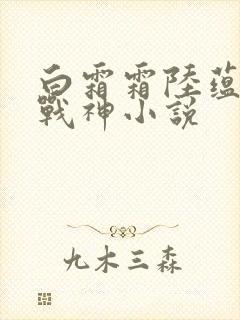 白霜霜陸蘊
戰神小說
九木三森